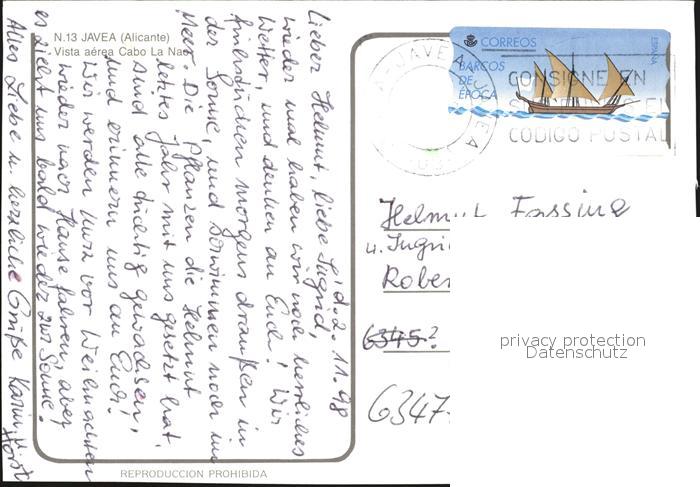 N.13 JAVEA (Alicante)
Vista aérea Cabo La Nao
CORREOS
ESPAÑA
BARCOS
DE
ÉPOCA
JAVEA
CONSIGNE EN
CODIGO POSTAL
d. 2. 11. 98
Lieber Helmut, liebe Ingrid,
wieder mal haben wir noch herrliches
Wetter, und denken an Euch! Wir
frühstücken morgens draußen in
der Sonne, und schwimmen noch im
Meer. Die Pflanzen die Helmut
letztes Jahr mit uns gesetzt hat,
sind alle tüchtig gewachsen,
und erinnern uns an Euch!
Wir werden kurz vor Weihnachten
wieder nach Hause fahren, aber
es zieht uns bald wieder zur Sonne!
Alles Liebe u. herzliche Grüße Karin,
Horst
Helmut Fassing
u. Ingri
Rober
6345?
6347
privacy protection
Datenschutz
REPRODUCCION PROHIBIDA